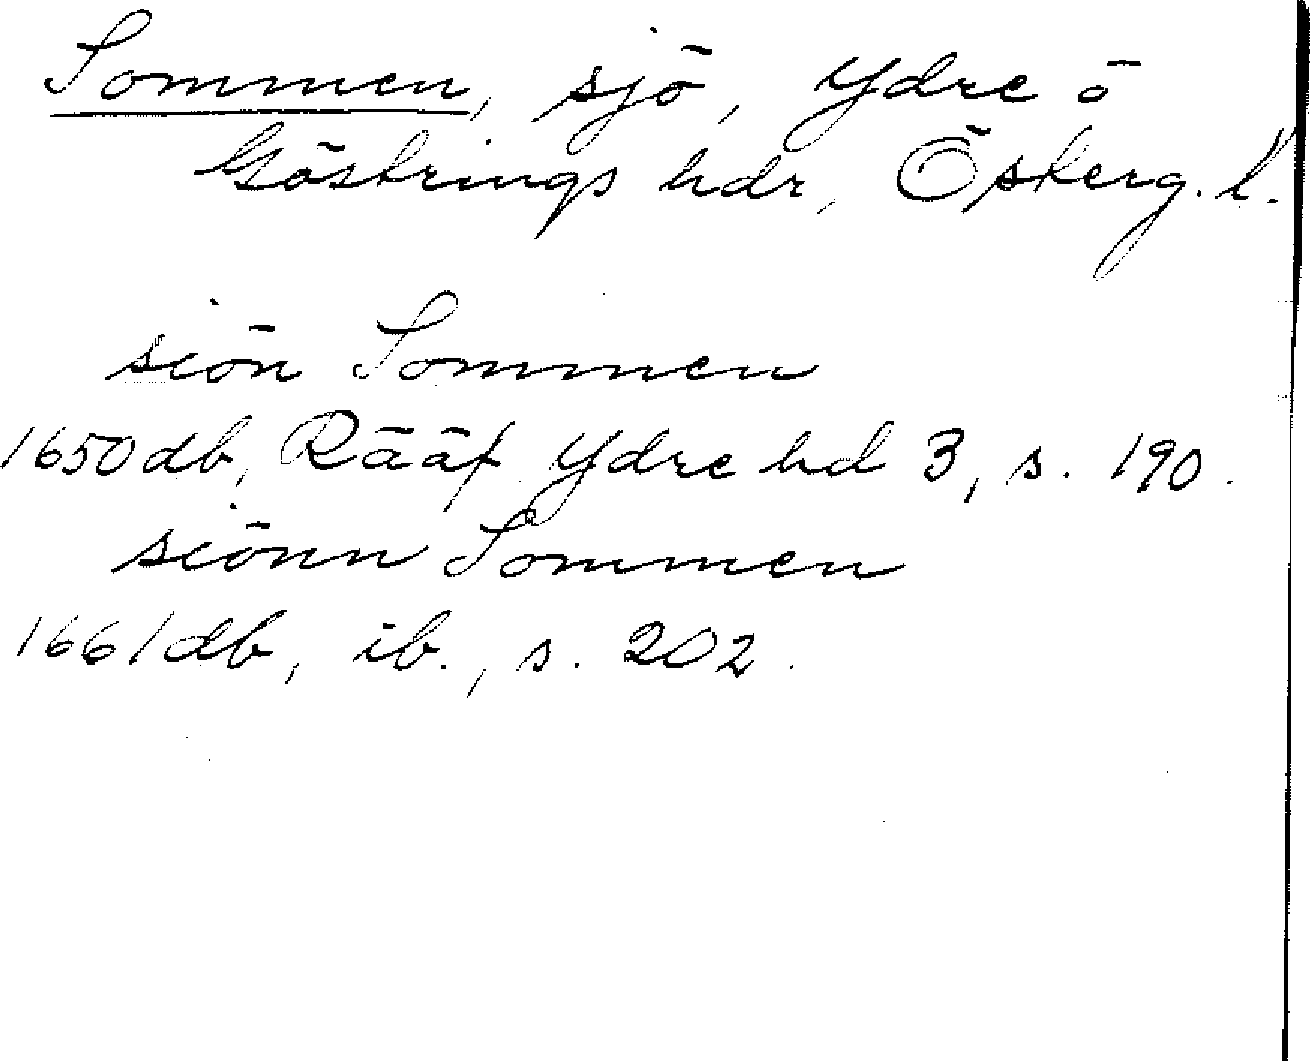 Sommen, sjö, Ydre o
Göstrings hdr, Österg. l.
siön Sommen
1650 db, Rääf Ydre hd 3, s. 190.
siönn Sommen
1661 db, ib., s. 202.